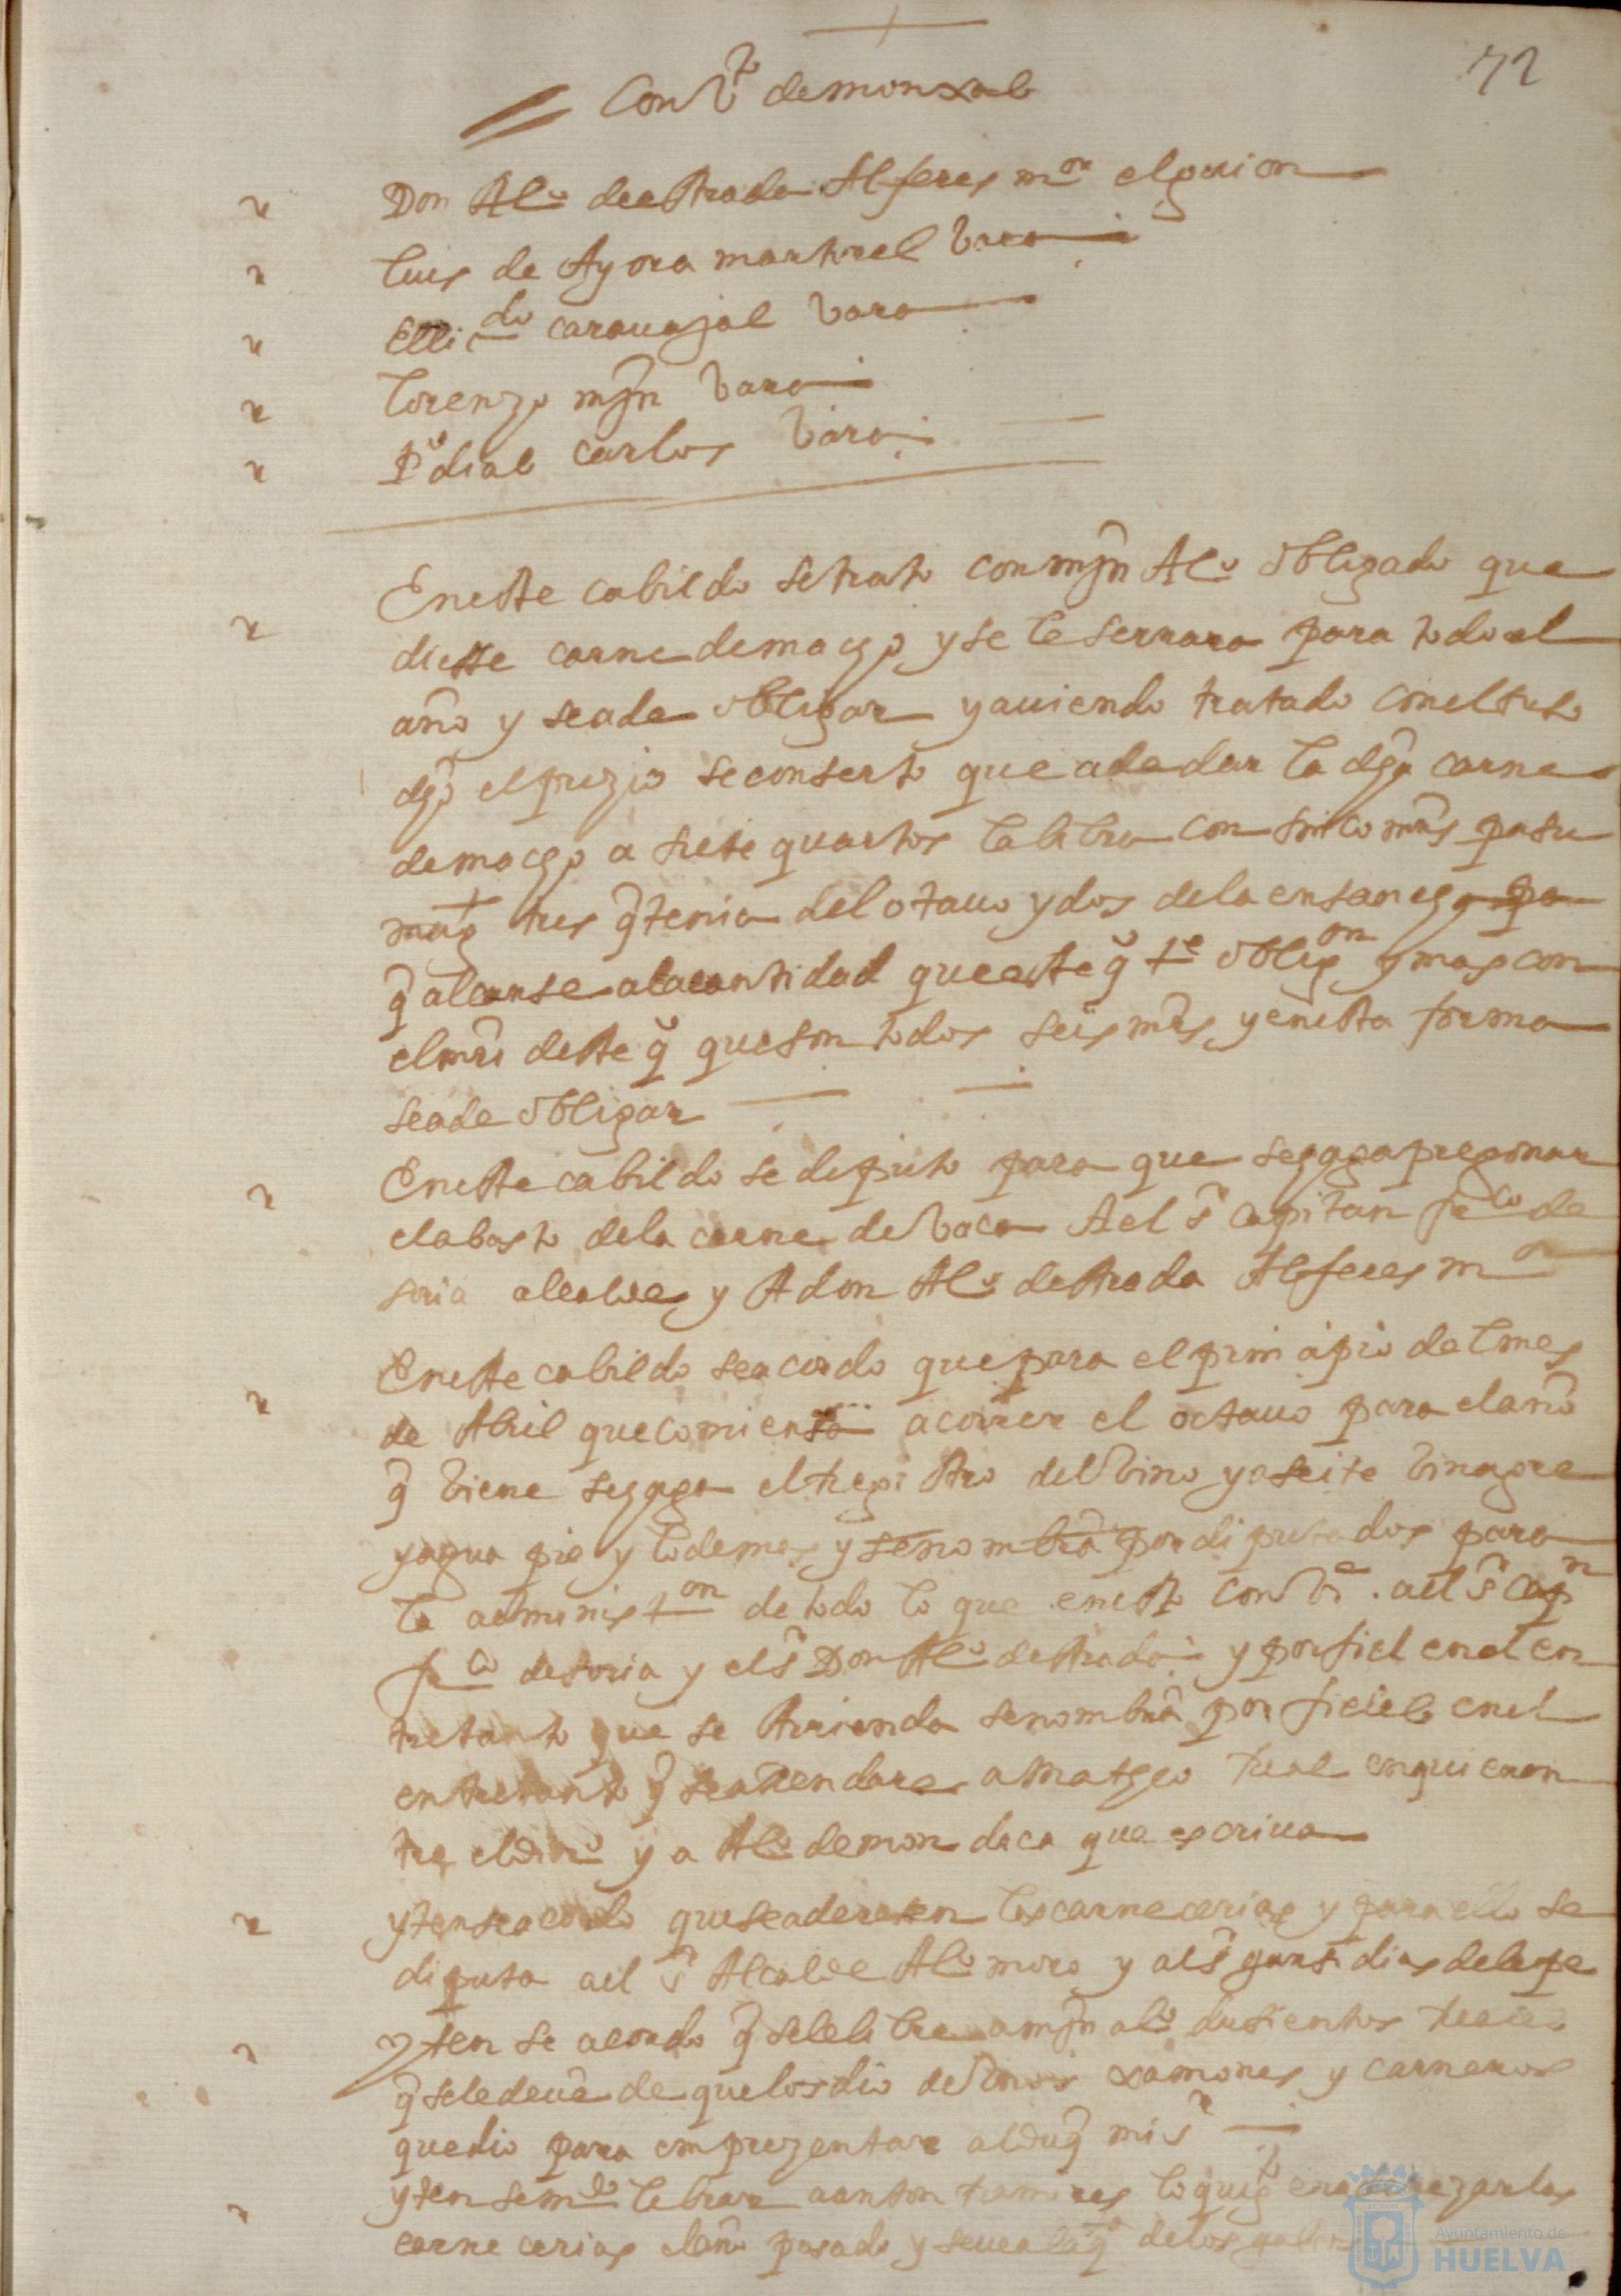 72
Con Vto de monxab
Don Alo de estrada Alferes mor el guion
luis de Ayora martorel Vara
El licdo carauajal Vara
lorenzo min Vara
Po dias carlos Vara
En este cabildo se trato con min Alo obligado que
diesse carne de macho y se le serrara para todo el
año y se a de obligar y auiendo tratado con el suso
dho el prezio se conserto que a de dar la dha carne
de macho a siete quartos la libra con sinco mrs
mas tres q tenia del otauo y dos de la
q alcanse a la cantidad que este qo obligon y mas con
el mri deste qo que son todos seis mrs y en esta forma
se a de obligar
En este cabildo se diputo para que se haga pregonar
el abasto de la carne de Vaca A el sr capitan frco de
soria alcalde y A don Alo destrada Alferes mor
En este cabildo se acordo que para el prinsipio del mes
de Abril que comiensa a correr el octauo para el año
q Viene se haga el rregistro del Vino y aseite Vinagre
y agua pie y lo demas y se nombra por diputados para
la administon de todo lo que en esto conVe a el sr capn
frco de soria y el sr Don Alo destrada y por fiel en el en
tretanto que se Arrienda se nombra por fieles en el
entretanto q se arrendare a Matheo
el dinro y a Alo de mondaca que escriua
yten se acordo que se aderesen las carnecerias y para ello se
diputa a el sr Alcalde Alo moro y al sr garsi dias de lepe
yten se acordo q se le libre a min alo dusientos rreales
q se le deue de que los dio de Unos xamones y carneros
que dio para emprezentar al duq mi sr
yten se mdo librar a anton rramires lo que gto en aderezar las
carnecerias el año pasado y de los
Ayuntamiento de
HUELVA